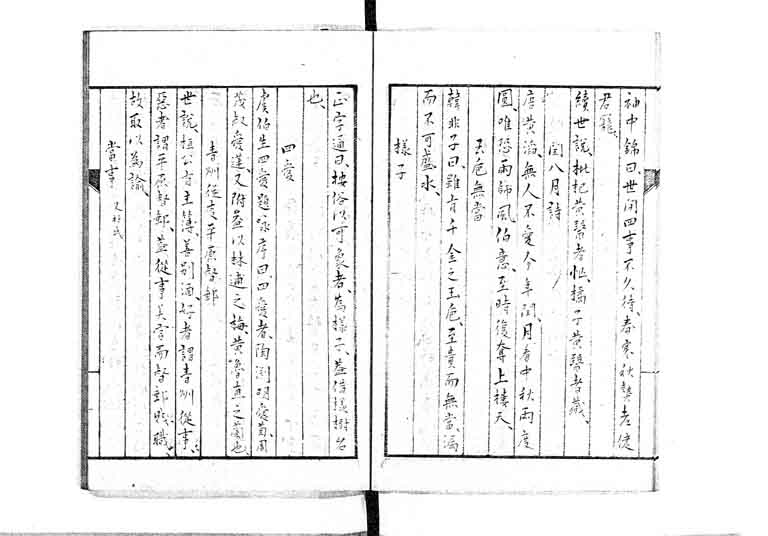 袖中錦曰、世間四事不久待、春寒秋熱老健
君寵、
續世說、枇杷黄醫者忙、橘子黄醫者藏、
閏八月詩
唐黄滔、無人不愛今年閏、月看中秋兩度
圓、唯恐雨師風伯意、至時復奪上樓天、
玉卮無當
韓非子曰、雖有千金之玉卮、至貴而無當漏
而不可盛水、
樣子
正字通曰、按俗以可象者、為樣子、蓋借樣樹名
也、
四愛
虞伯生四愛題詠序曰、四愛者、陶淵明愛菊、周
茂叔愛蓮、又附益以林逋之梅、黄魯直之蘭也、
青州從事平原督郵
世說、桓公有主簿、善别酒、好者謂青州從事、
惡者謂平原督郵、蓋從事美官而督郵賤職、
故取以為諭、
當事